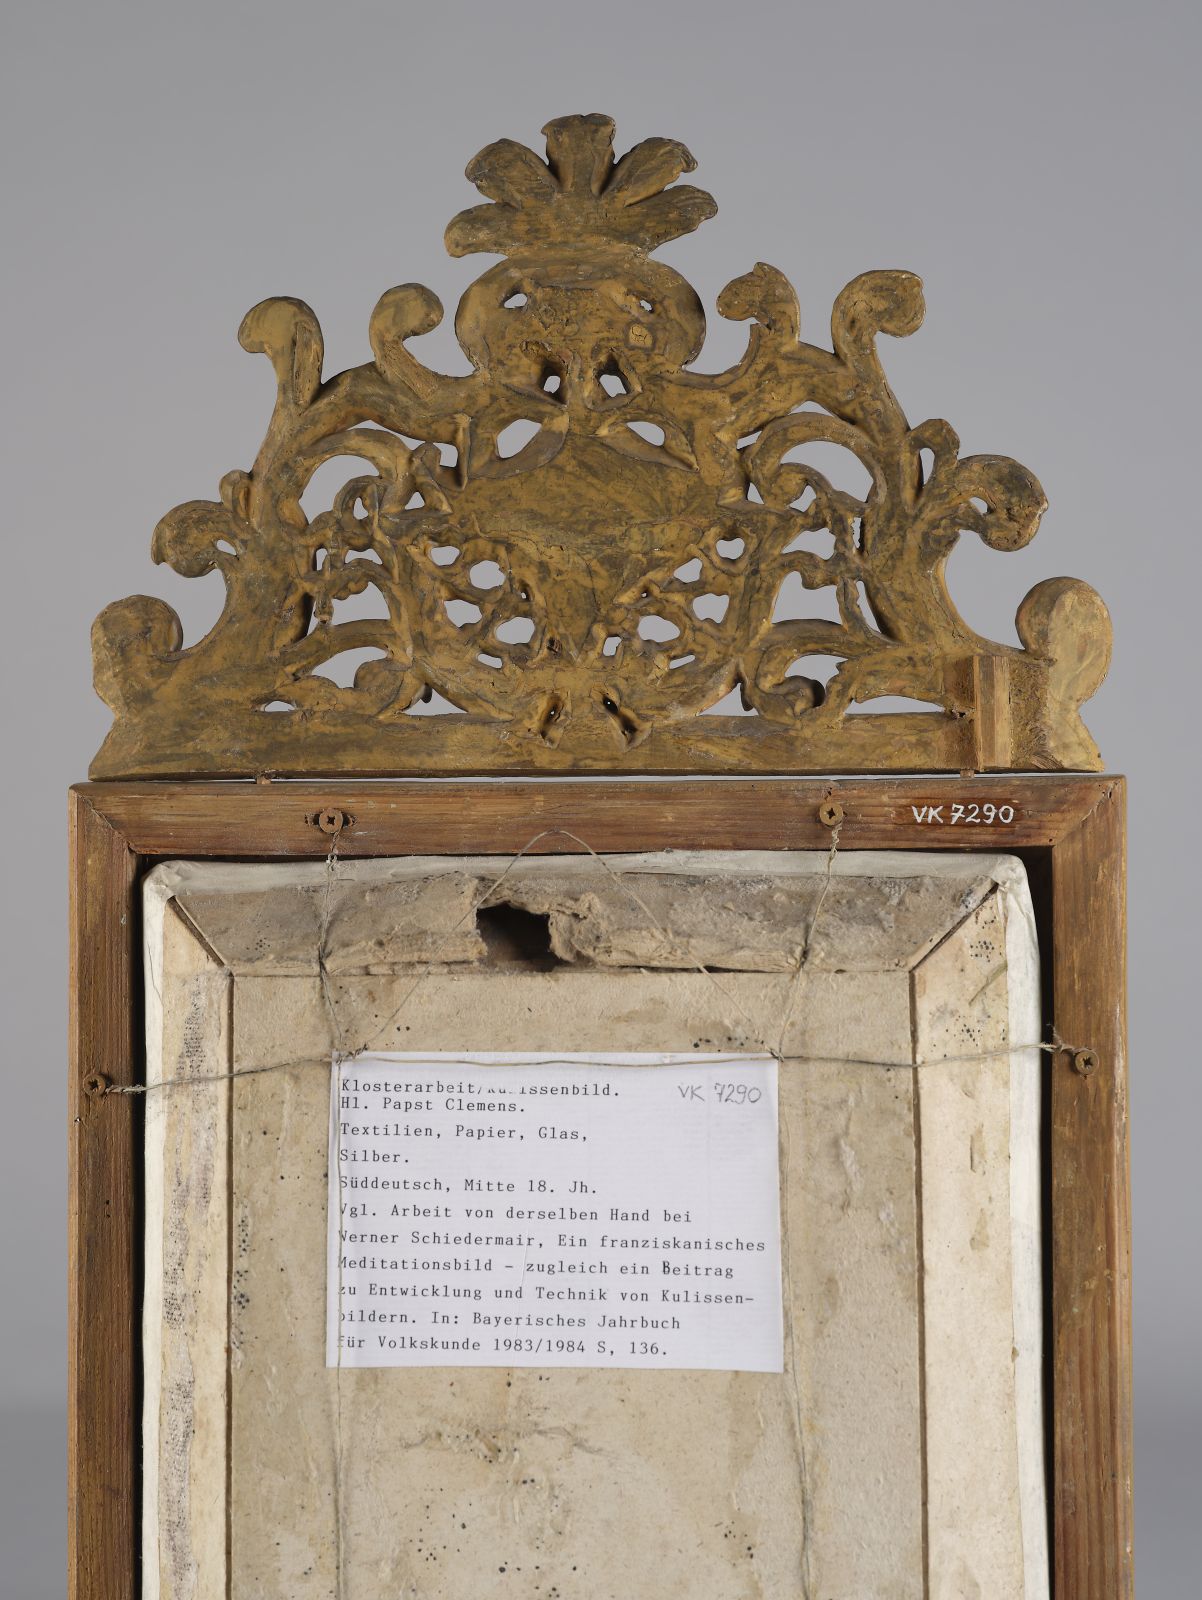 VK 7290
Klosterarbeit/Kulissenbild. VK 7290
Hl. Papst Clemens.
Textilien, Papier, Glas,
Silber.
Süddeutsch, Mitte 18. Jh.
Vgl. Arbeit von derselben Hand bei
Werner Schiedermair, Ein franziskanisches
Meditationsbild - zugleich ein Beitrag
zu Entwicklung und Technik von Kulissen-
bildern. In: Bayerisches Jahrbuch
für Volkskunde 1983/1984 S, 136.